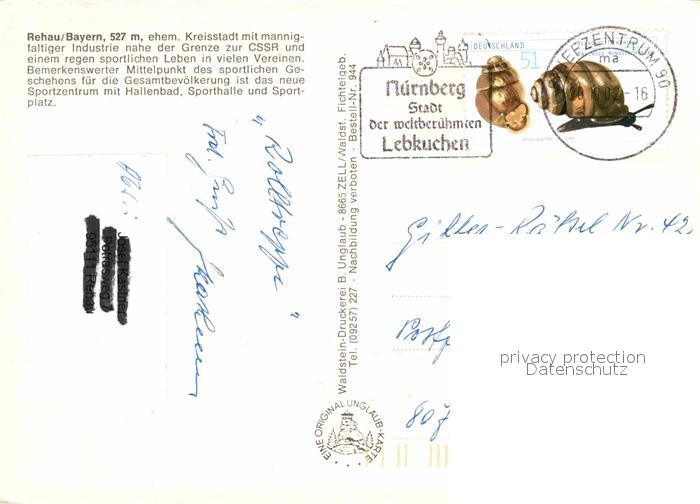 Rehau/Bayern, 527 m, ehem. Kreisstadt mit mannig-
faltiger Industrie nahe der Grenze zur CSSR und
einem regen sportlichen Leben in vielen Vereinen.
Bemerkenswerter Mittelpunkt des sportlichen Ge-
schehens für die Gesamtbevölkerung ist das neue
Sportzentrum mit Hallenbad, Sporthalle und Sport-
platz.
Abs.:
"Rolltreppe"
Waldstein-Druckerei B. Unglaub - 8665 ZELL/Waldst. Fichtelgeb.
Tel. (09257) 227 - Nachbildung verboten - Bestell-Nr. 944
EINE ORIGINAL UNGLAUB-KARTE
Nürnberg
Stadt
der weltberühmten
Lebkuchen
DEUTSCHLAND
51
EFZENTRUM 90
ma
-16
Gitter-Rätsel Nr. 42
Postf
80
privacy protection
Datenschutz